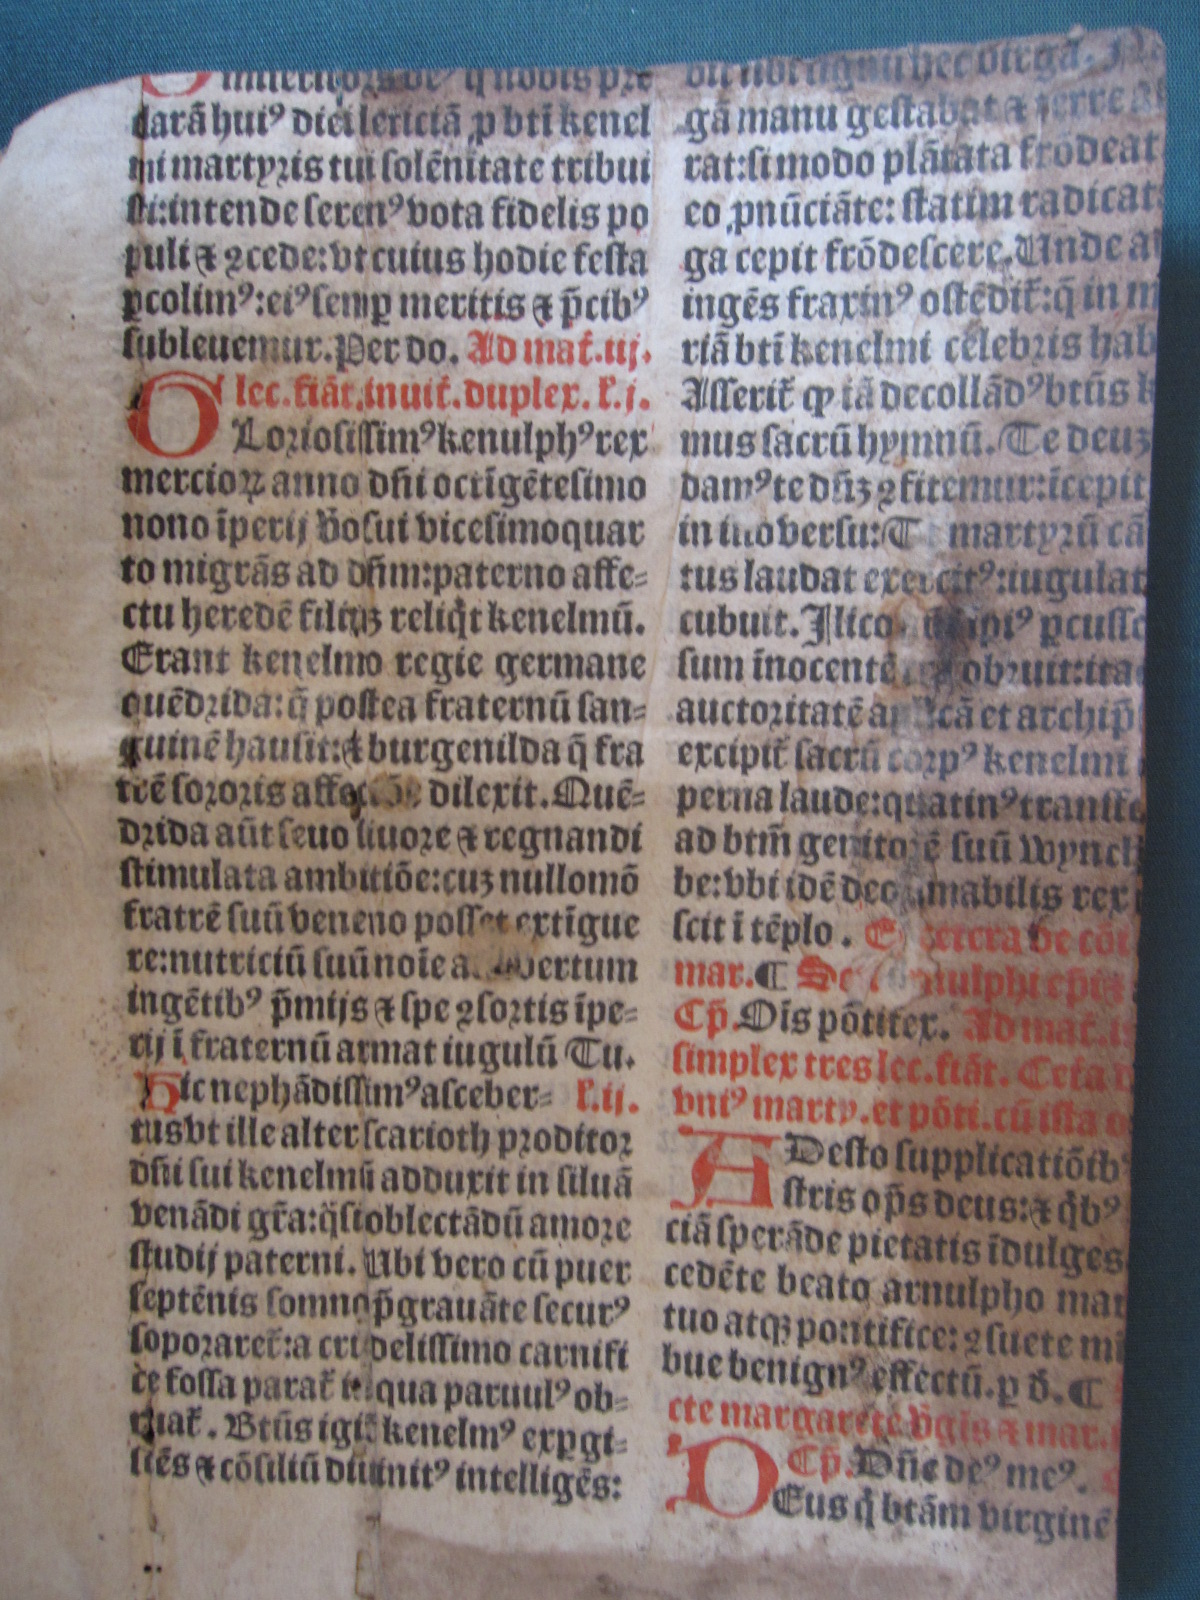 darā huiꝰ diei leticiā ꝓ bti kenel
mi martyris tui solēnitate tribui
sti:intende serenꝰ vota fidelis po
puli ⁊ ꝯcede:vt cuius hodie festa
ꝑcolimꝰ:eiꝰ semꝑ meritis ⁊ p̄cibꝰ
subleuemur. Per do. Ad mat̄.iij.
lec. fiāt.inuit̄.duplex. ł.j.
GLoriosissimꝰ kenulphꝰ rex
mercioꝝ anno dn̄i octigētesimo
nono īperij v̄o sui vicesimoquar
to migrās ad dn̄m:paterno affe⸗
ctu heredē filiūqꝫ reliq̇t kenelmū.
Erant kenelmo regie germane
quēdrida:q̄ postea fraternū san⸗
guinē hausit:⁊ burgenilda q̄ fra
trē sororis dilexit. Quē⸗
drida aūt seuo liuore ⁊ regnandi
stimulata ambitiōe:cuꝫ nullomō
fratrē suū veneno posset extīgue
re:nutriciū suū noīe
ingētibꝰ p̄mijs ⁊ spe ꝯsortis īpe⸗
rij ī fraternū armat iugulū Tu.
Hic nephādissimꝰ asceber⸗ ł.ij.
tus vt ille alter scarioth proditor
dn̄i sui kenelmū adduxit in siluā
venādi gr̄a:q̄si oblectādū amore
studij paterni. Ubi vero cū puer
septēnis somno p̄grauāte securꝰ
soporaret̄:a crudelissimo carnifi
ce fossa parat̄ in qua paruulꝰ ob⸗
ruat̄. Btūs igit̄ kenelmꝰ exꝑgi⸗
scēs ⁊ cōsiliū diuinitꝰ intelligēs:
gā manu gestabat ⁊ terre
rat:si modo plātata frōdeat
eo ꝓnūciāte: statim radicat
ga cepit frōdescere. Unde
ingēs fraxinꝰ ostēdit̄:q̄ in m
riā bti kenelmi celebris hab
Asserit̄ ꝙ iā decollādꝰ btūs k
mus sacrū hymnū. Te deuꝫ
damꝰ te dn̄ꝫ ꝯfitemur:īcepit
in illo versu: martyrū cā
tus laudat exercitꝰ:iugulat
cubuit. Ilico ipiꝰ ꝑcusso
sum īnocentē obruit:ita
auctoritatē et archip̄
excipit̄ sacrū corpꝰ kenelmi
perna laude:quatinꝰ transfe
ad btm̄ genitorē suū wynch
be:vbi idē deo amabilis rex
scit ī tēplo. de cōi
mar.¶ nulphi
Cp̄. Oīs pōtifex. Ad mat̄.
simplex tres lec. fiāt. Cet̄a
vniꝰ marty. et pōti. cū ista
ADesto supplicatiōibꝰ
stris op̄s deus:⁊ q̇bꝰ
ciā sperāde pietatis īdulges
cedēte beato arnulpho mar
tuo atqꝫ pontifice: ꝯsuete mi
bue benignꝰ effectū.ꝑ d̄.¶
cte margarete v̄gis ⁊ mar.
Cp̄. Dn̄e deꝰ meꝰ.
DEus q̇ btām virginē